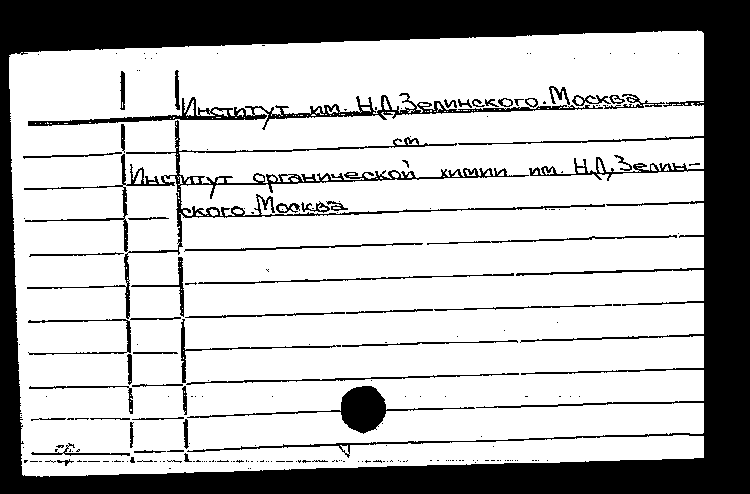 Институт им. Н.Д.Зелинского. Москва.
см.
Институт органической химии им. Н.Д.Зелин-
ского. Москва